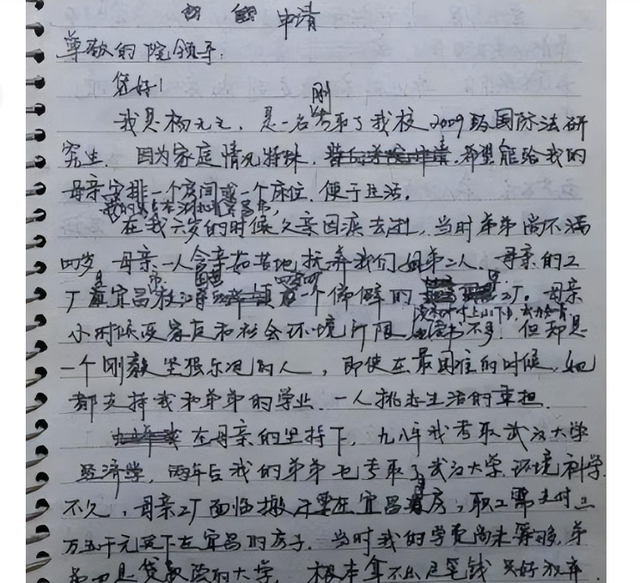 申请
尊敬的院领导:
您好!
刚
我是杨元元,是一名考取了我校2009级国际法研
究生.因为家庭情况特殊,希望能给我的
母亲安排一个房间或一个床位.便于生活.
在我六岁的时候父亲因病去世,当时弟弟尚不满
四岁.母亲一人含辛茹苦地抚养我们姐弟二人.母亲的工
厂是宜昌枝江一个偏僻的工厂。母亲
小时候受家庭和社会环境所限,读书不多!但却是
一个刚毅坚强乐观的人,即使在最困难的时候,她
都支持我和弟弟的学业.一人挑起生活的重担.
在母亲的坚持下,九八年我考取武汉大学
经济学,两年后我的弟弟也考取了武汉大学环境科学.
不久,母亲工厂面临搬迁要在宜昌房,职工需支付三
万五千元买下在宜昌的房子.当时我的学费尚未筹够,弟
弟也是贷款读的大学.根本拿不出这笔钱只好放弃